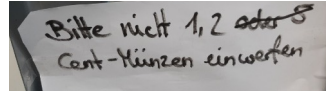 Bitte nicht 1, 2 oder 5
Cent-Münzen einwerfen